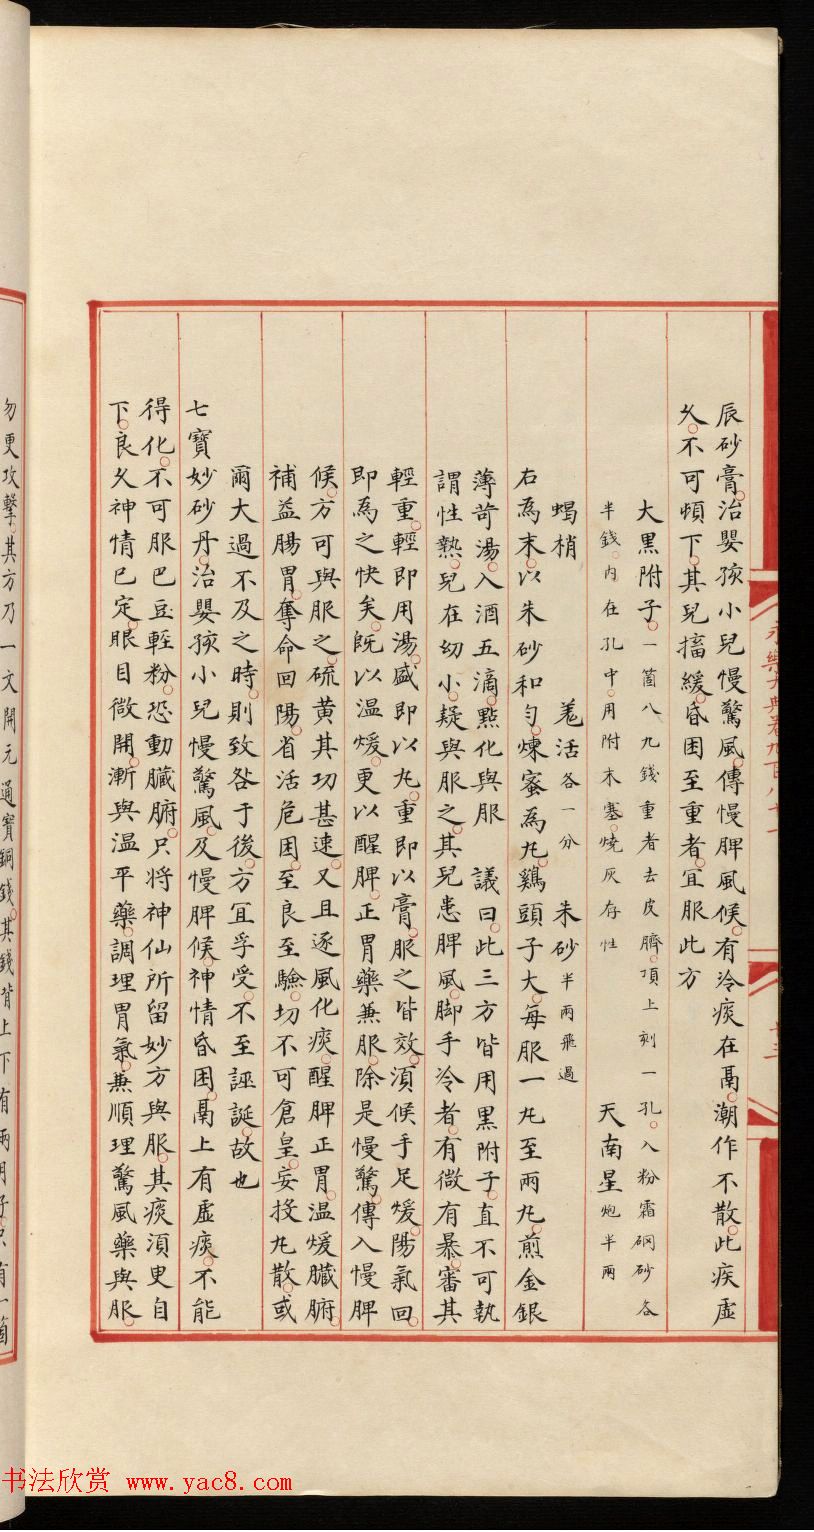 永樂大典卷九百八十一
十三
辰砂膏治嬰孩小兒慢驚風傳慢脾風候有冷痰在鬲潮作不散此疾虛
久不可頓下其兒搐緩昏困至重者宜服此方
大黑附子一箇八九錢重者去皮臍頂上剜一孔入粉霜硇砂各
半錢内在孔中用附末塞燒灰存性 天南星炮半兩
蝎梢 羗活各一分 朱砂半兩飛過
右為末以朱砂和勻煉蜜為丸鷄頭子大每服一丸至兩丸煎金銀
薄荷湯入酒五滴㸃化與服 議曰此三方皆用黑附子直不可執
謂性熱兒在幼小疑與服之其兒患脾風脚手冷者有微有暴審其
輕重輕即用湯盛即以丸重即以膏服之皆效湏候手足煖陽氣回
即為之快矣既以温煖更以醒脾正胃藥兼服除是慢驚傳入慢脾
候方可與服之硫黄其功甚速又且逐風化痰醒脾正胃温煖臟腑
補益腸胃奪命回陽省活危困至良至驗切不可倉皇妄投丸散或
爾大過不及之時則致咎于後方宜孚受不至誣誕故也
七寳妙砂丹治嬰孩小兒慢驚風及慢脾候神情昏困鬲上有虛痰不能
得化不可服巴豆輊粉恐動臟腑只將神仙所留妙方與服其痰湏更自
下良久神情已定眼目微開漸與温平藥調理胃氣兼順理驚風藥與服
勿更攻擊其方乃一文開元通寳銅錢其錢背上下有兩月子只有一箇
书法欣赏 www.yac8.com